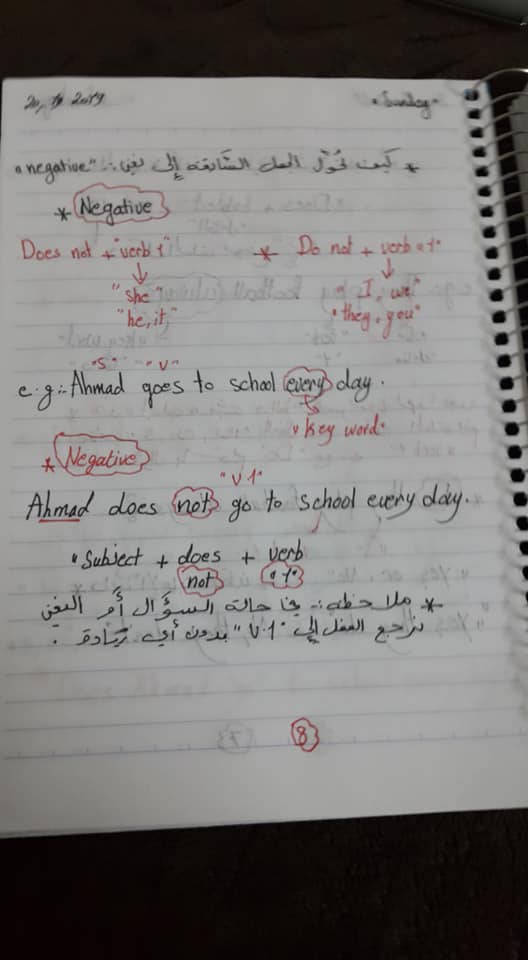 20, 10 2019 "Sunday"
* كيف نحوّل الجمل السّابقة إلى نفي :. "negative"
* Negative
Does not + "verb 1" * Do not + verb "1"
"she" "I, we"
"he, it," "they, you"
"S" "V"
e.g:. Ahmad goes to school every day.
"Key word"
* Negative
"V1"
Ahmad does not go to school every day.
"Subject + does + verb
not "1"
* ملاحظة :. في حالة السؤال أم النفي
نرجع الفعل إلى "V.1" بدون أي زيادة .
8